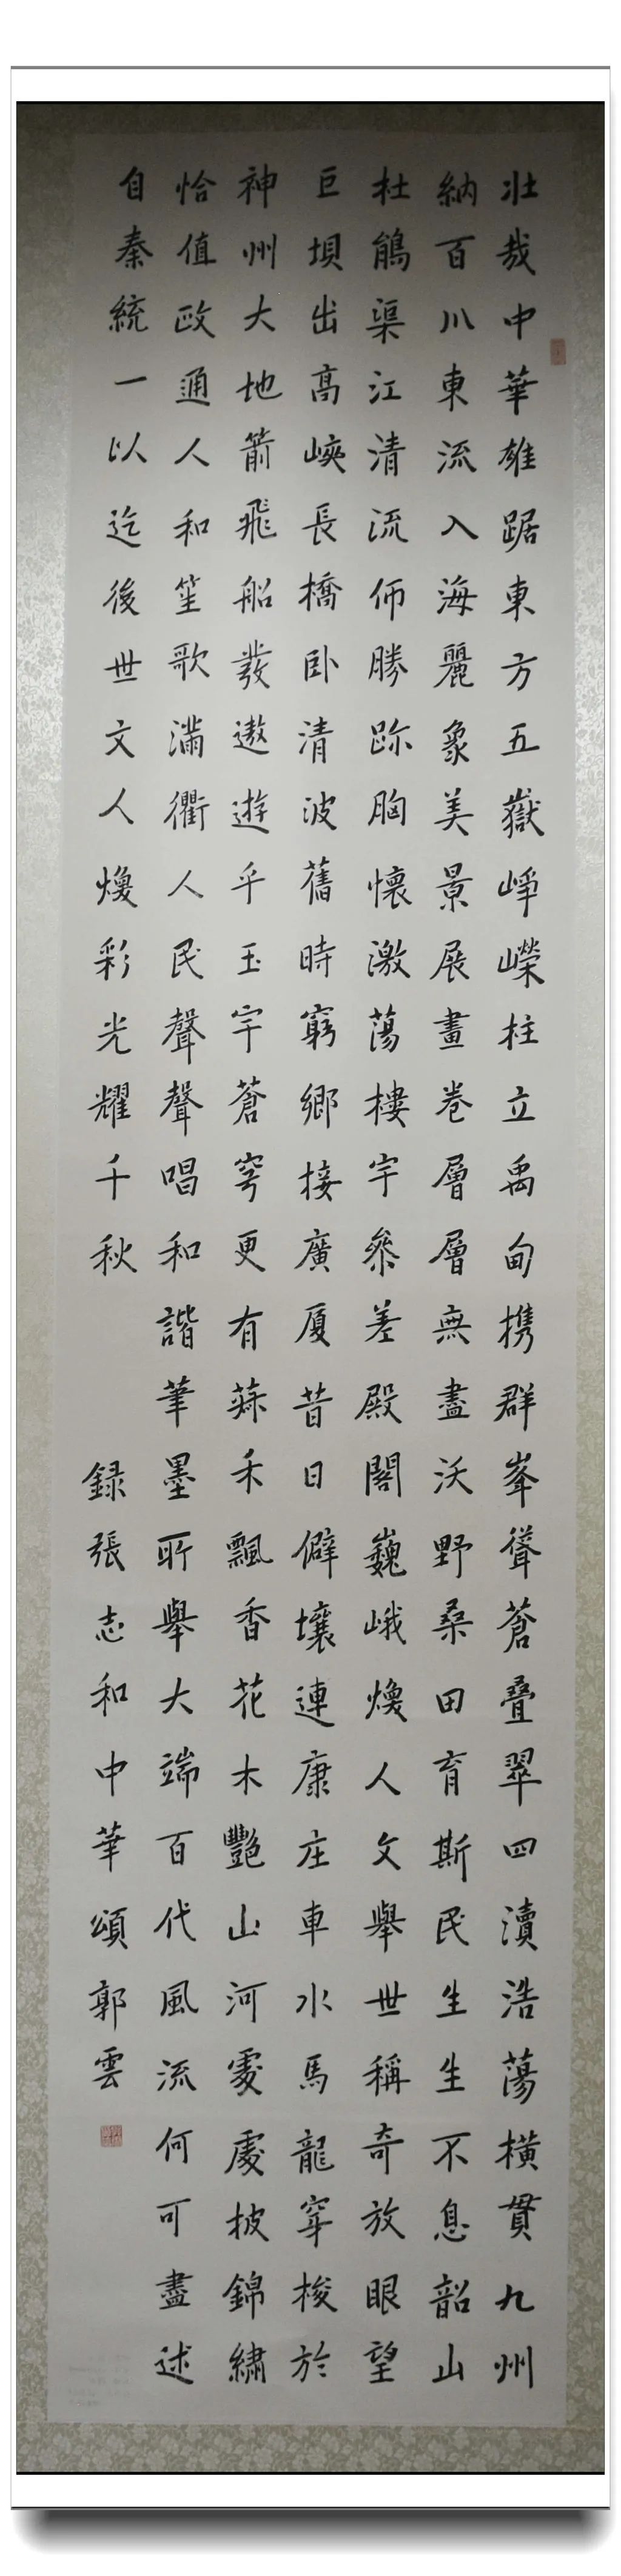 壯哉中華雄踞東方五嶽崢嶸柱立禹甸携群峯聳蒼疊翠四瀆浩蕩橫貫九州
納百川東流入海麗象美景展畫卷層層無盡沃野桑田育斯民生生不息韶山
杜鵑渠江清流師勝跡胸懷激蕩樓宇參差殿閣巍峨煥人文舉世稱奇放眼望
巨垻出高峽長橋卧清波舊時窮鄉接廣厦昔日僻壤連康庄車水馬龍穿梭於
神州大地箭飛船發遨遊乎玉宇蒼穹更有蒜禾飄香花木艷山河處處披錦繡
恰值政通人和笙歌滿衢人民聲聲唱和諧筆墨所舉大端百代風流何可盡述
自秦統一以迄後世文人煥彩光耀千秋
録張志和中華頌郭雲